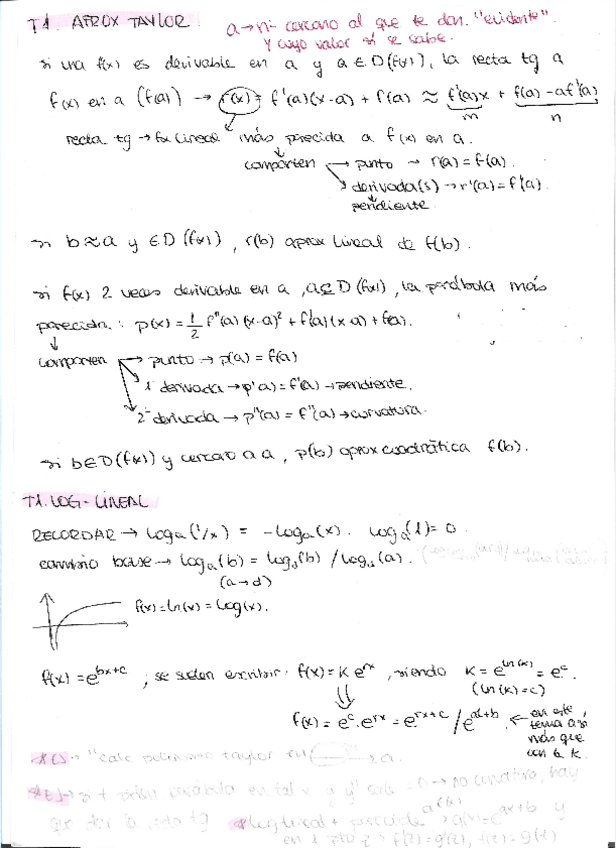 T1. APROX TAYLOR.
a → nº cercano al que te dan. "evidente".
Y cuyo valor sí se sabe.
si una f(x) es derivable en a y a ∈ D(f(x)), la recta tg a
f(x) en a (f(a)) → r(x) = f'(a)(x-a) + f(a) ≈ f'(a)x + f(a) - af'(a)
m n
recta tg → fx lineal más parecida a f(x) en a.
comparten → punto → r(a) = f(a).
derivada(s) → r'(a) = f'(a).
pendiente
si b≈a y ∈ D(f(x)), r(b) aprox lineal de f(b).
si f(x) 2 veces derivable en a, a∈D(f(x)), la parábola más
parecida: p(x) = 1/2 f''(a)(x-a)² + f'(a)(x-a) + f(a).
comparten → punto → p(a) = f(a)
1ª derivada → p'(a) = f'(a) → pendiente.
2ª derivada → p''(a) = f''(a) → curvatura.
si b∈D(f(x)) y cercano a a, p(b) aprox cuadrática f(b).
T1. LOG-LINEAL
RECORDAR → logₐ(1/x) = -logₐ(x). logₐ(1) = 0.
cambio base → logₐ(b) = log_d(b) / log_d(a).
(a → d)
f(x) = ln(x) = log(x).
f(x) = e^{bx+c}; se suelen escribir: f(x) = K e^{rx}, siendo K = e^{ln(K)} = e^c.
(ln(K) = c)
f(x) = e^c · e^{rx} = e^{rx+c} / e^{ax+b} ← en este
tema así
más que
con la K.
"Calc polinomio taylor
parábola en tal x y y'' sale no cuadrática, hay
que dar la recta tg log lineal + parecida → g(x) = e^{ax+b} y
en 1 pto